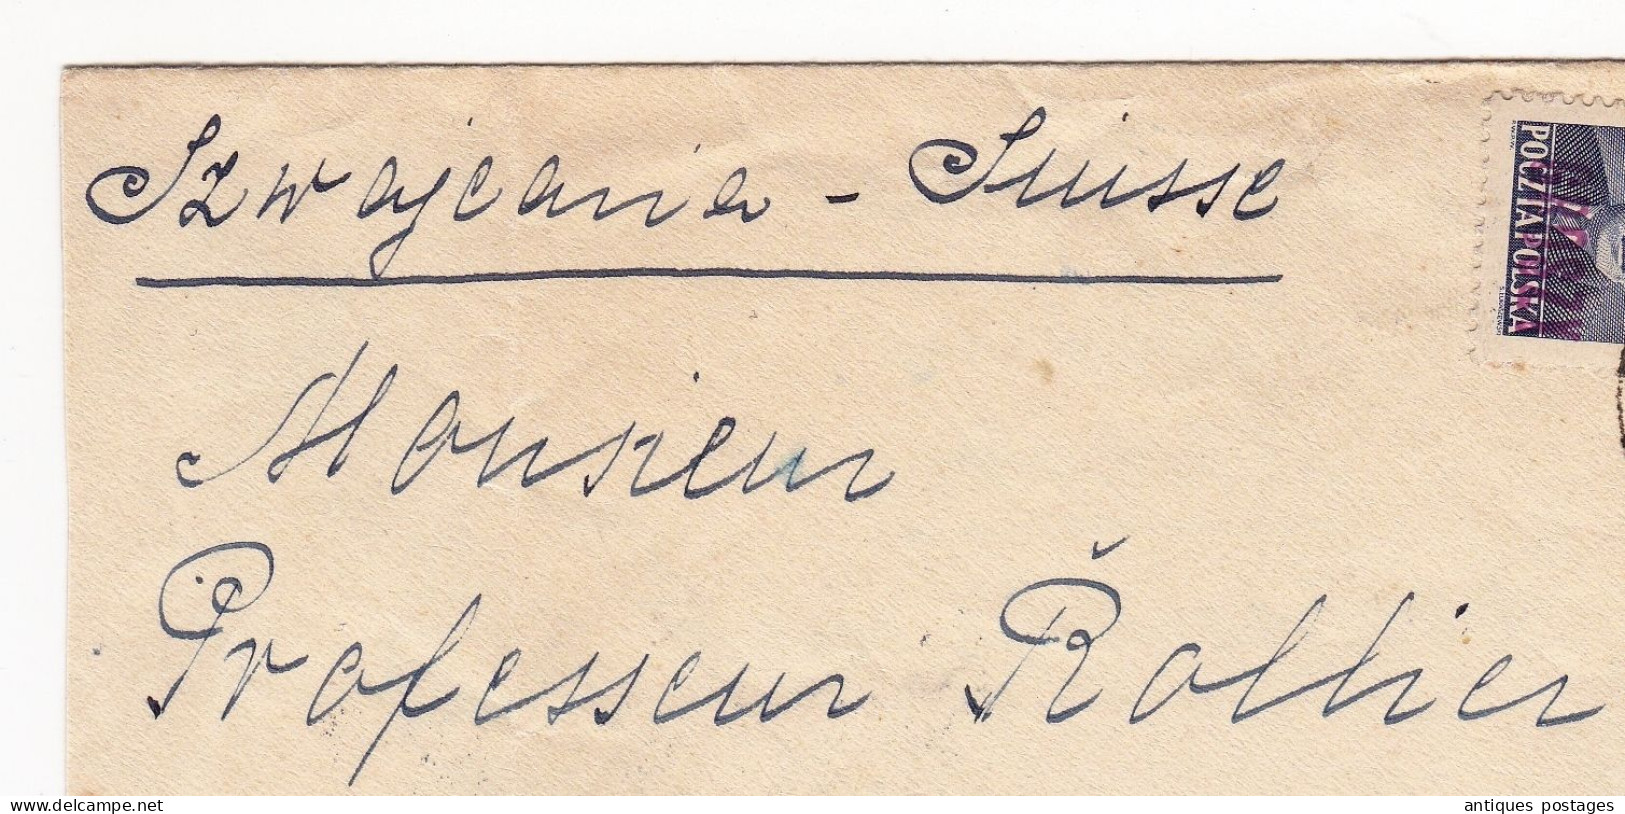 Szwajcaria - Suisse
POCZTA POLSKA
Monsieur
Professeur
www.delcampe.net
antiques postages